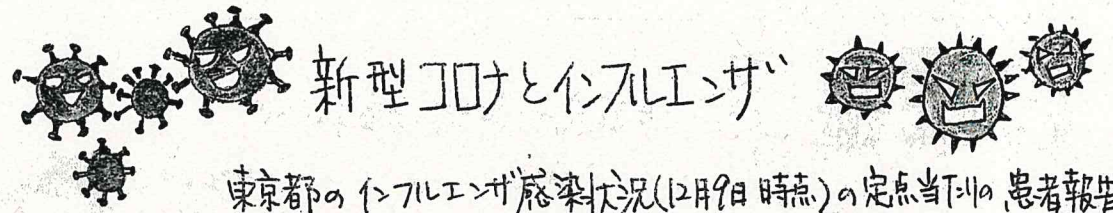 新型コロナとインフルエンザ
東京都のインフルエンザ感染状況(12月9日時点)の定点当たりの患者報告